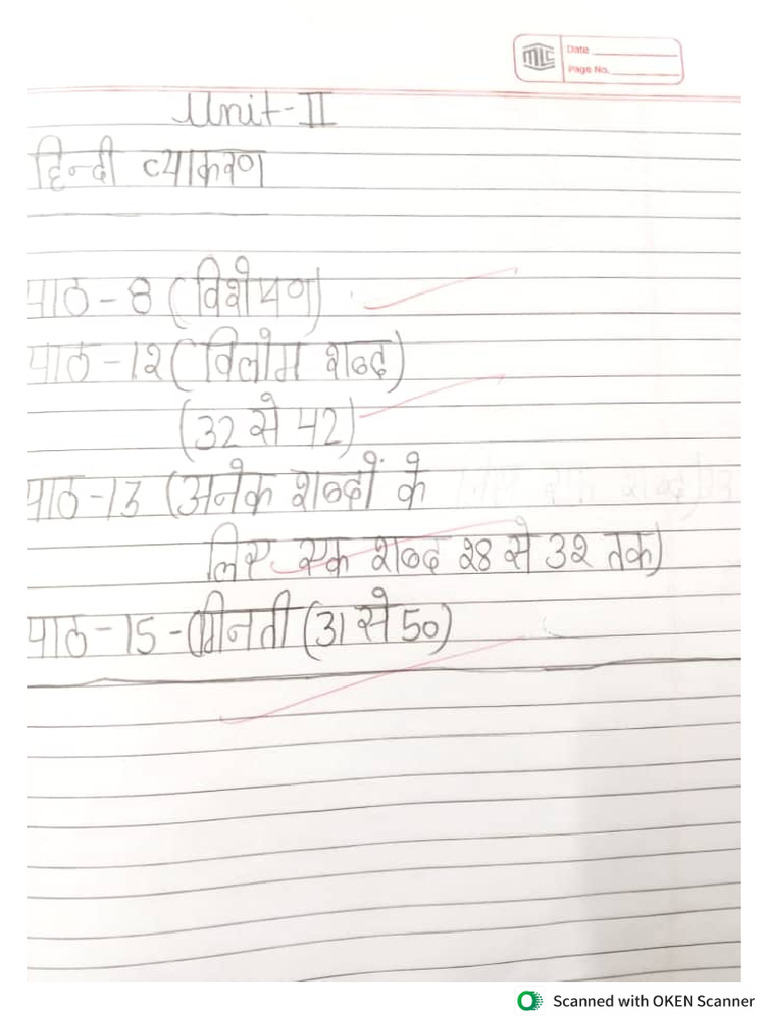 MLC
Date
Page No.
Unit-II
हिन्दी व्याकरण
पाठ - 8 (विशेषण)
पाठ - 12 (विलोम शब्द)
(32 से 42)
पाठ -13 (अनेक शब्दों के
लिए एक शब्द 28 से 32 तक)
पाठ -15 - गिनती (31 से 50)
Scanned with OKEN Scanner